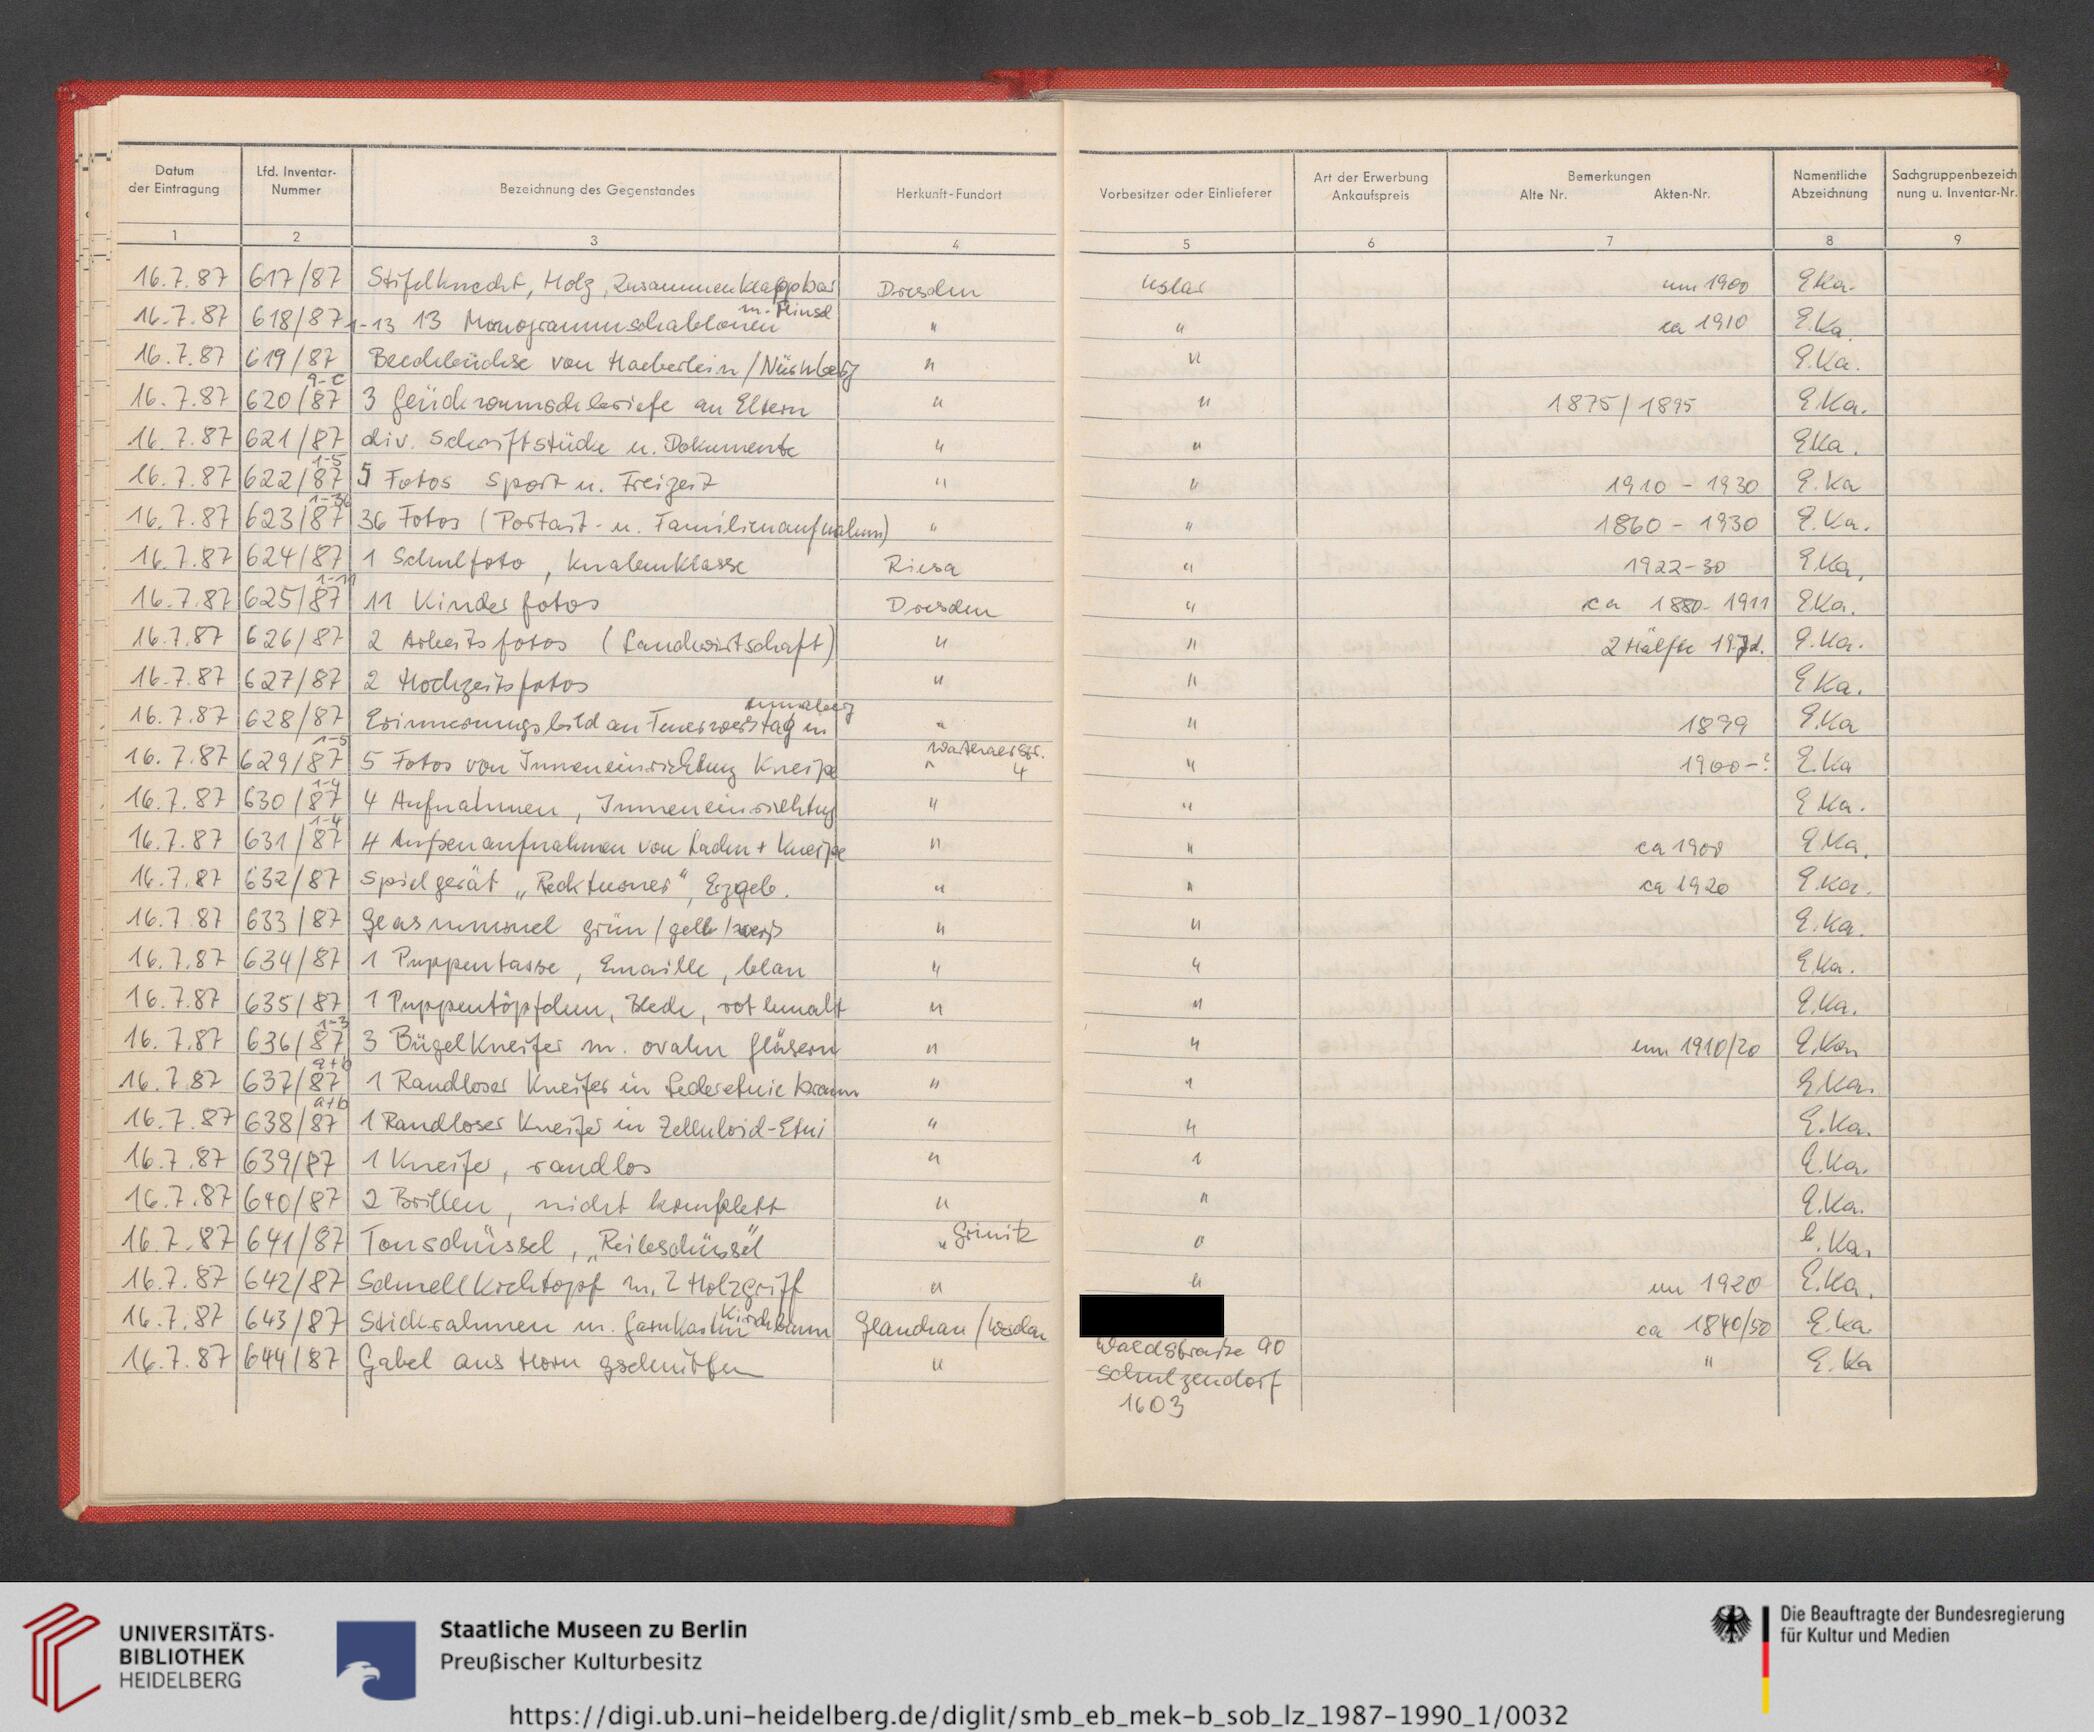 Datum der Eintragung | Lfd. Inventar-Nummer | Bezeichnung des Gegenstandes | Herkunft-Fundort | Vorbesitzer oder Einlieferer | Art der Erwerbung Ankaufspreis | Bemerkungen Alte Nr. Akten-Nr. | Namentliche Abzeichnung | Sachgruppenbezeich nung u. Inventar-Nr.
1 2 3 4 5 6 7 8 9
16.7.87 617/87 Stifelknecht, Holz, Zusammenklappbar Dresden Uslar um 1900 E.Ka.
16.7.87 618/87 1-13 13 Monogrammschablonen m. Pinsel " " ca 1910 E.Ka.
16.7.87 619/87 Blechbüchse von Haeberlein/Nürnberg " " E.Ka.
16.7.87 620/87 a-c 3 Glückwunschbriefe an Eltern " " 1875/1895 E.Ka.
16.7.87 621/87 div. Schriftstücke u. Dokumente " " E.Ka.
16.7.87 622/87 1-5 5 Fotos Sport u. Freizeit " " 1910 - 1930 E.Ka
16.7.87 623/87 1-36 36 Fotos (Portait- u. Familienaufnahmn) " " 1860 - 1930 E.Ka.
16.7.87 624/87 1 Schulfoto, Knabenklasse Riesa " 1922-30 E.Ka.
16.7.87 625/87 1-11 11 Kinderfotos Dresden " ca 1880-1911 E.Ka.
16.7.87 626/87 2 Arbeitsfotos (Landwirtschaft) " " 2 Hälfte 19.Jd. E.Ka.
16.7.87 627/87 2 Hochzeitsfotos " " E.Ka.
16.7.87 628/87 Erinnerungsbild an Feuerwehrtag in Annaberg " " 1899 E.Ka
16.7.87 629/87 1-5 5 Fotos von Inneneinrichtung Kneipe " 4 " 1900-? E.Ka
16.7.87 630/87 1-4 4 Aufnahmen, Inneneinrichtug " " E.Ka.
16.7.87 631/87 1-4 4 Außenaufnahmen von Laden + Kneipe " " ca 1900 E.Ka.
16.7.87 632/87 Spielgerät „Recktuner“, Erzgeb. " " ca 1920 E.Ka.
16.7.87 633/87 Glasmurmel grün/gelb/weiß " " E.Ka.
16.7.87 634/87 1 Puppentasse, Emaille, blau " " E.Ka.
16.7.87 635/87 1 Puppentöpfchen, Blech, rot bemalt " " E.Ka.
16.7.87 636/87 1-3 3 Bügelkneifer m. ovalen Gläsern " " um 1910/20 E.Ka.
16.7.87 637/87 a+b 1 Randloser Kneifer in Lederetuie braun " " E.Ka.
16.7.87 638/87 a+b 1 Randloser Kneifer in Zelluloid-Etui " " E.Ka.
16.7.87 639/87 1 Kneifer, randlos " " E.Ka.
16.7.87 640/87 2 Brillen, nicht komplett " " E.Ka.
16.7.87 641/87 Tonschüssel, „Reibeschüssel“ " Grinitz " E.Ka.
16.7.87 642/87 Schnellkochtopf m. 2 Holzgriff " " um 1920 E.Ka.
16.7.87 643/87 Stickrahmen m. Garnkasten Kirschbaum Glauchau/ ca 1840/50 E.Ka.
16.7.87 644/87 Gabel aus Horn gschnitten " Waldstraße 90 " E.Ka
Schulzendorf
1603
UNIVERSITÄTS-
BIBLIOTHEK
HEIDELBERG
Staatliche Museen zu Berlin
Preußischer Kulturbesitz
Die Beauftragte der Bundesregierung
für Kultur und Medien
https://digi.ub.uni-heidelberg.de/diglit/smb_eb_mek-b_sob_lz_1987-1990_1/0032